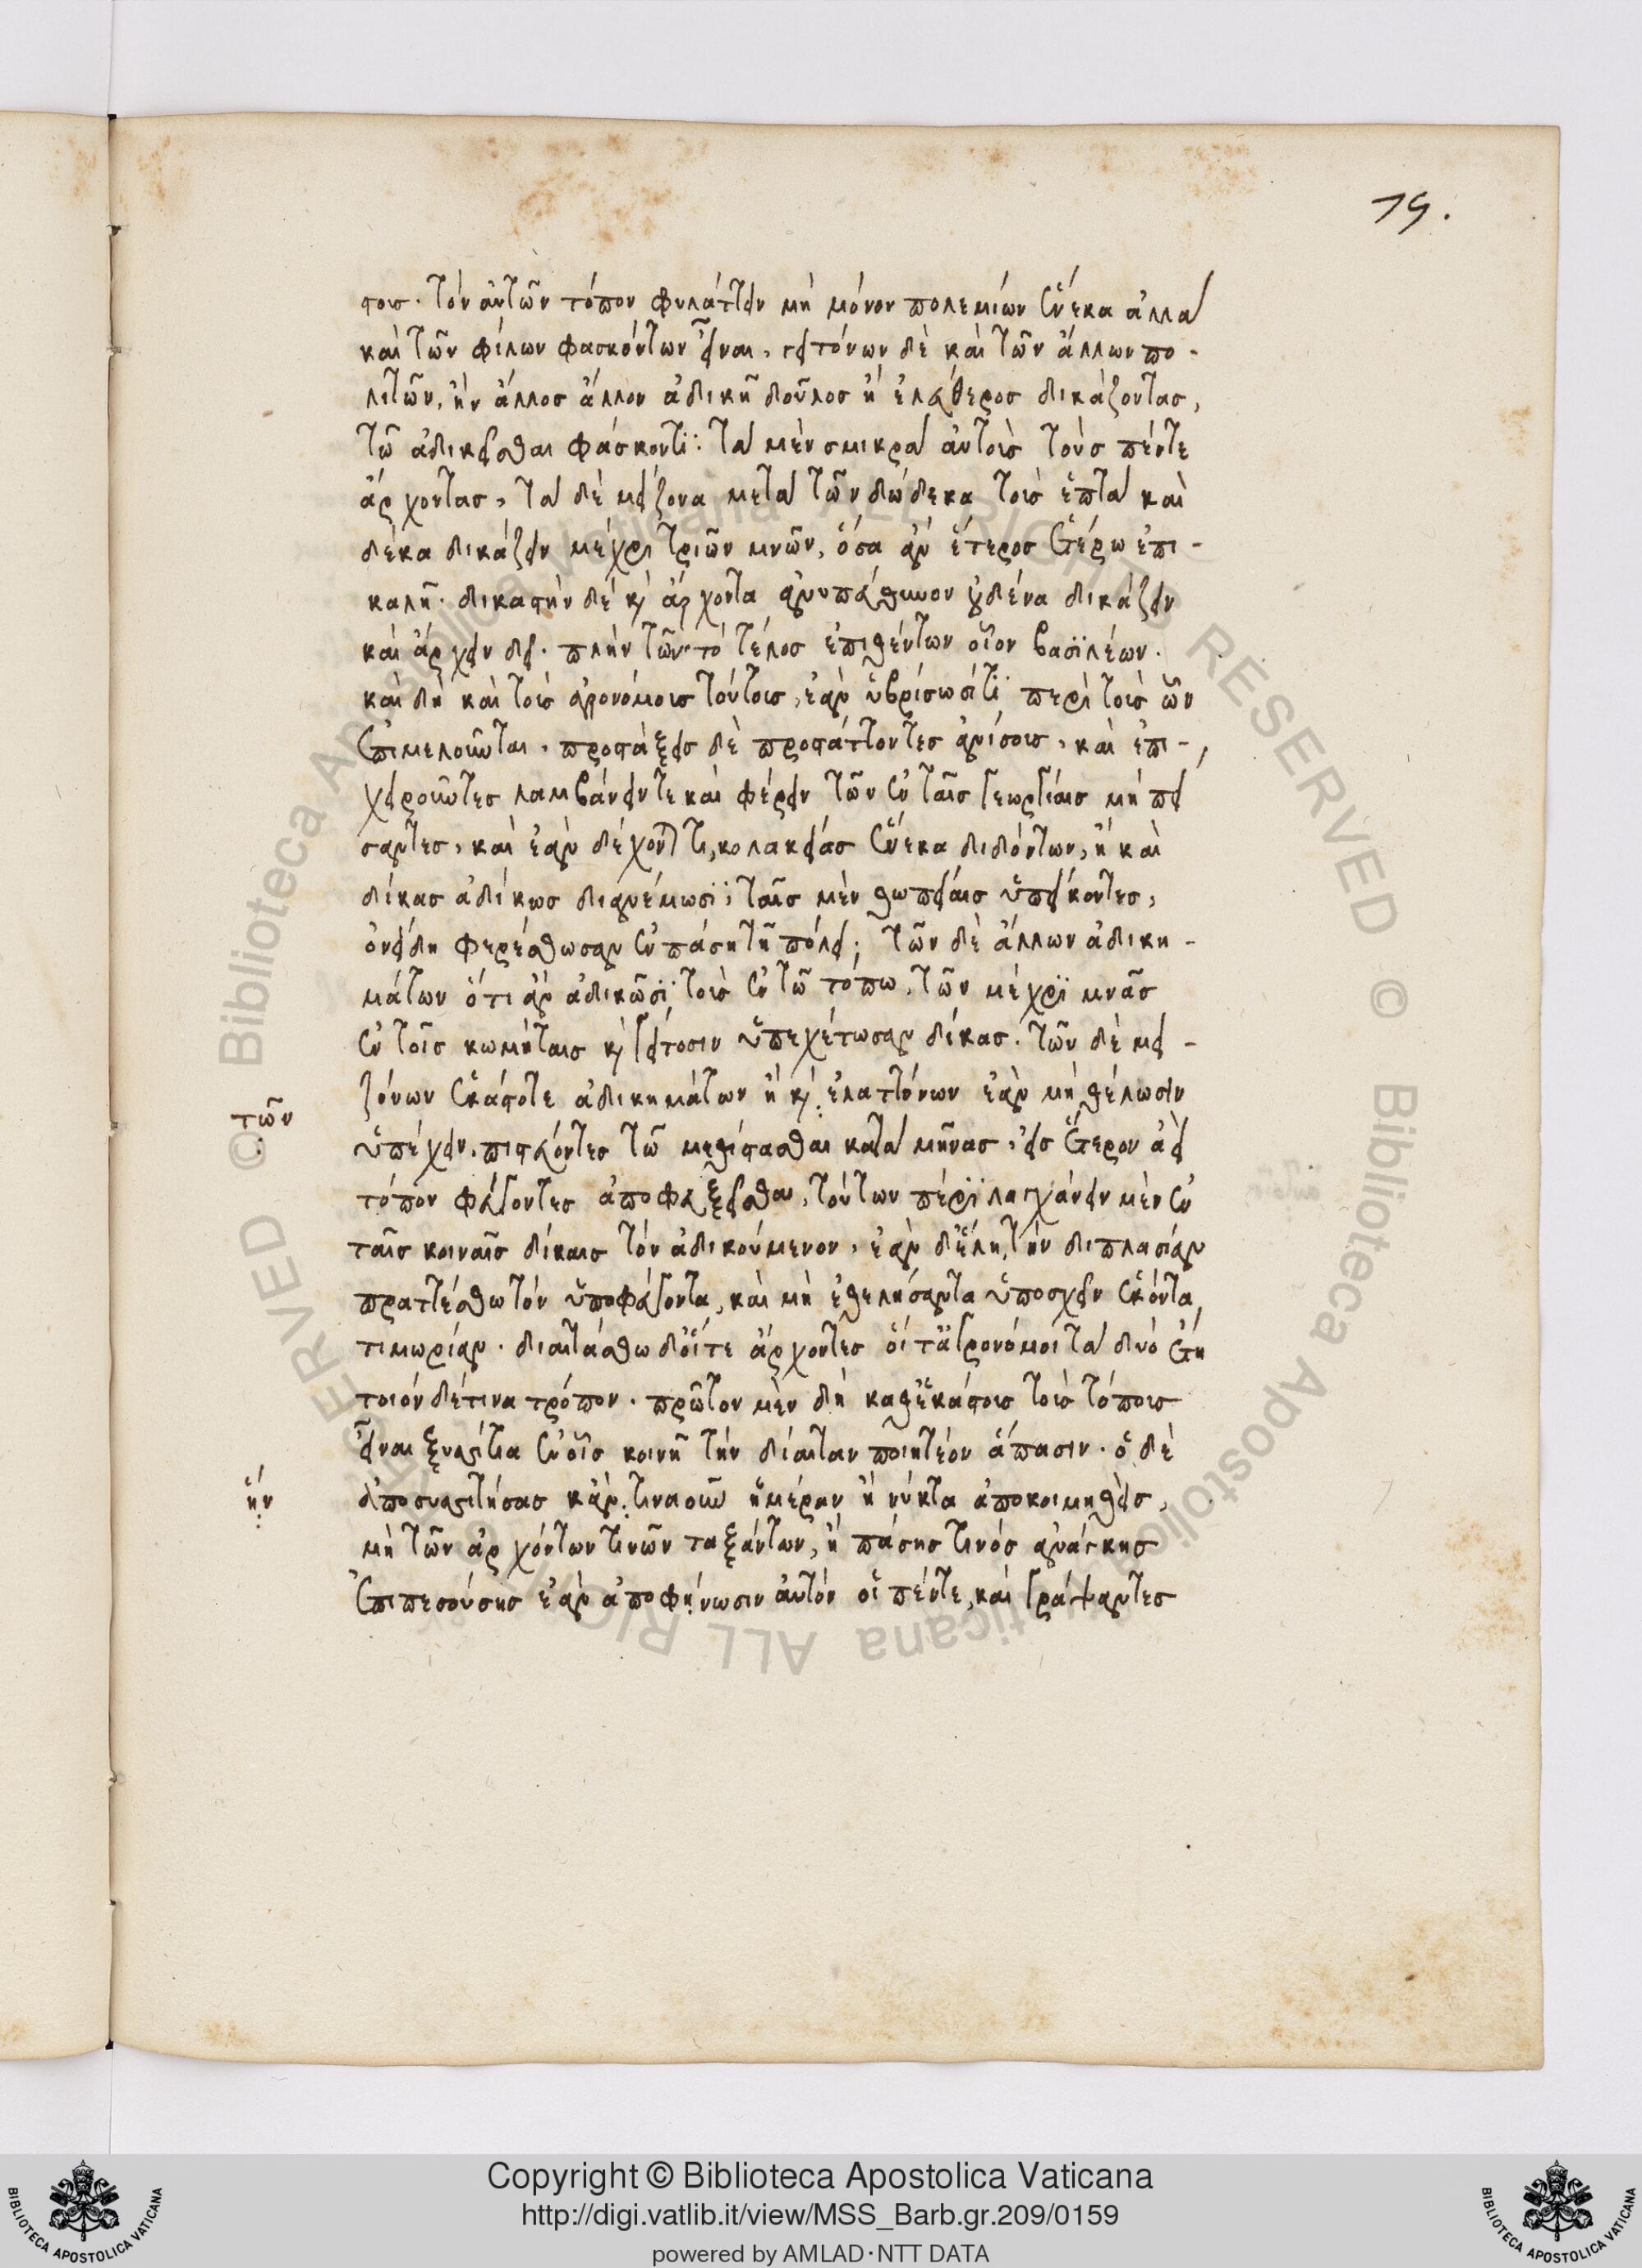 79.
στοις. τὸν αὐτῶν τόπον φυλάττειν μὴ μόνον πολεμίων ἕνεκα ἀλλὰ
καὶ τῶν φίλων φασκόντων εἶναι, γειτόνων δὲ καὶ τῶν ἄλλων πο-
λιτῶν, ἢν ἄλλος ἄλλον ἀδικῆ δοῦλος ἢ ἐλεύθερος δικάζοντας,
τῶ ἀδικεῖσθαι φάσκοντι: τὰ μὲν σμικρὰ αὐτοὺς τοὺς πέντε
ἄρχοντας, τὰ δὲ μείζονα μετὰ τῶν δώδεκα τοὺς ἑπτὰ καὶ
δέκα δικάζειν μέχρι τριῶν μνῶν, ὅσα ἂν ἕτερος ἑτέρω ἐπι-
καλῆ. δικαστὴν δὲ καὶ ἄρχοντα ἀνυπεύθυνον οὐδένα δικάζειν
καὶ ἄρχειν δεῖ. πλὴν τῶν τὸ τέλος ἐπιθέντων οἷον βασιλέων.
καὶ δὴ καὶ τοὺς ἀγρονόμους τούτους, ἐὰν ὑβρίζωσί τι περὶ τοὺς ὧν
ἐπιμελοῦνται, προστάξεις δὲ προστάττοντες ἀνίσους, καὶ ἐπι-
χειροῦντες λαμβάνειν τε καὶ φέρειν τῶν ἐν ταῖς γεωργίαις μὴ πεί
σαντες, καὶ ἐὰν δέχωνταί τι, κολακείας ἕνεκα διδόντων, ἢ καὶ
δίκας ἀδίκως διανέμωσι, ταῖς μὲν θωπείαις ὑπείκοντες,
ὀνείδη φερέσθωσαν ἐν πάση τῆ πόλει; τῶν δὲ ἄλλων ἀδικη-
μάτων ὅτι ἂν ἀδικῶσι τοὺς ἐν τῶ τόπω, τῶν μέχρι μνᾶς
ἐν τοῖς κωμήταις καὶ γείτοσιν ὑπεχέτωσαν δίκας. τῶν δὲ μει-
ζόνων ἑκάστοτε ἀδικημάτων ἢ καὶ ἐλαττόνων ἐὰν μὴ θέλωσιν
τῶν
ὑπέχειν, πιστεύοντες τῶ μεθίστασθαι κατὰ μῆνας, εἰς ἕτερον ἀεὶ
τόπον φεύγοντες ἀποφευξεῖσθαι, τούτων πέρι λαγχάνειν μὲν ἐν
ταῖς κοιναῖς δίκαις τὸν ἀδικούμενον, ἐὰν δ' ἕλη, τὴν διπλασίαν
πραττέσθω τὸν ὑποφεύγοντα, καὶ μὴ ἐθελήσαντα ὑποσχεῖν ἑκόντα,
τιμωρίαν. διαιτάσθω δ' οἵ τε ἄρχοντες οἵ τ' ἀγρονόμοι τὰ δυὸ ἔτη
τοιόνδέ τινα τρόπον. πρῶτον μὲν δὴ καθ' ἑκάστους τοὺς τόπους
εἶναι ξυσσίτια ἐν οἷς κοινῆ τὴν δίαιταν ποιητέον ἅπασιν. ὁ δὲ
ἣν
ἀποσυσσιτήσας κἂν τινα οὖν ἡμέραν ἢ νύκτα ἀποκοιμηθεὶς,
μὴ τῶν ἀρχόντων τινῶν ταξάντων, ἢ πάσης τινὸς ἀνάγκης
ἐπιπεσούσης ἐὰν ἀποφήνωσιν αὐτὸν οἱ πέντε, καὶ γράψαντες
Copyright © Biblioteca Apostolica Vaticana
http://digi.vatlib.it/view/MSS_Barb.gr.209/0159
powered by AMLAD·NTT DATA
BIBLIOTECA APOSTOLICA VATICANA
BIBLIOTECA APOSTOLICA VATICANA